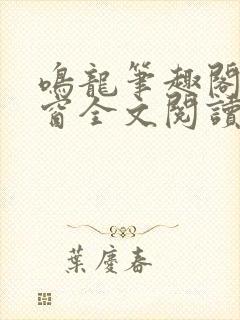 鳴龍筆趣閣
窗全文閱讀
葉慶春